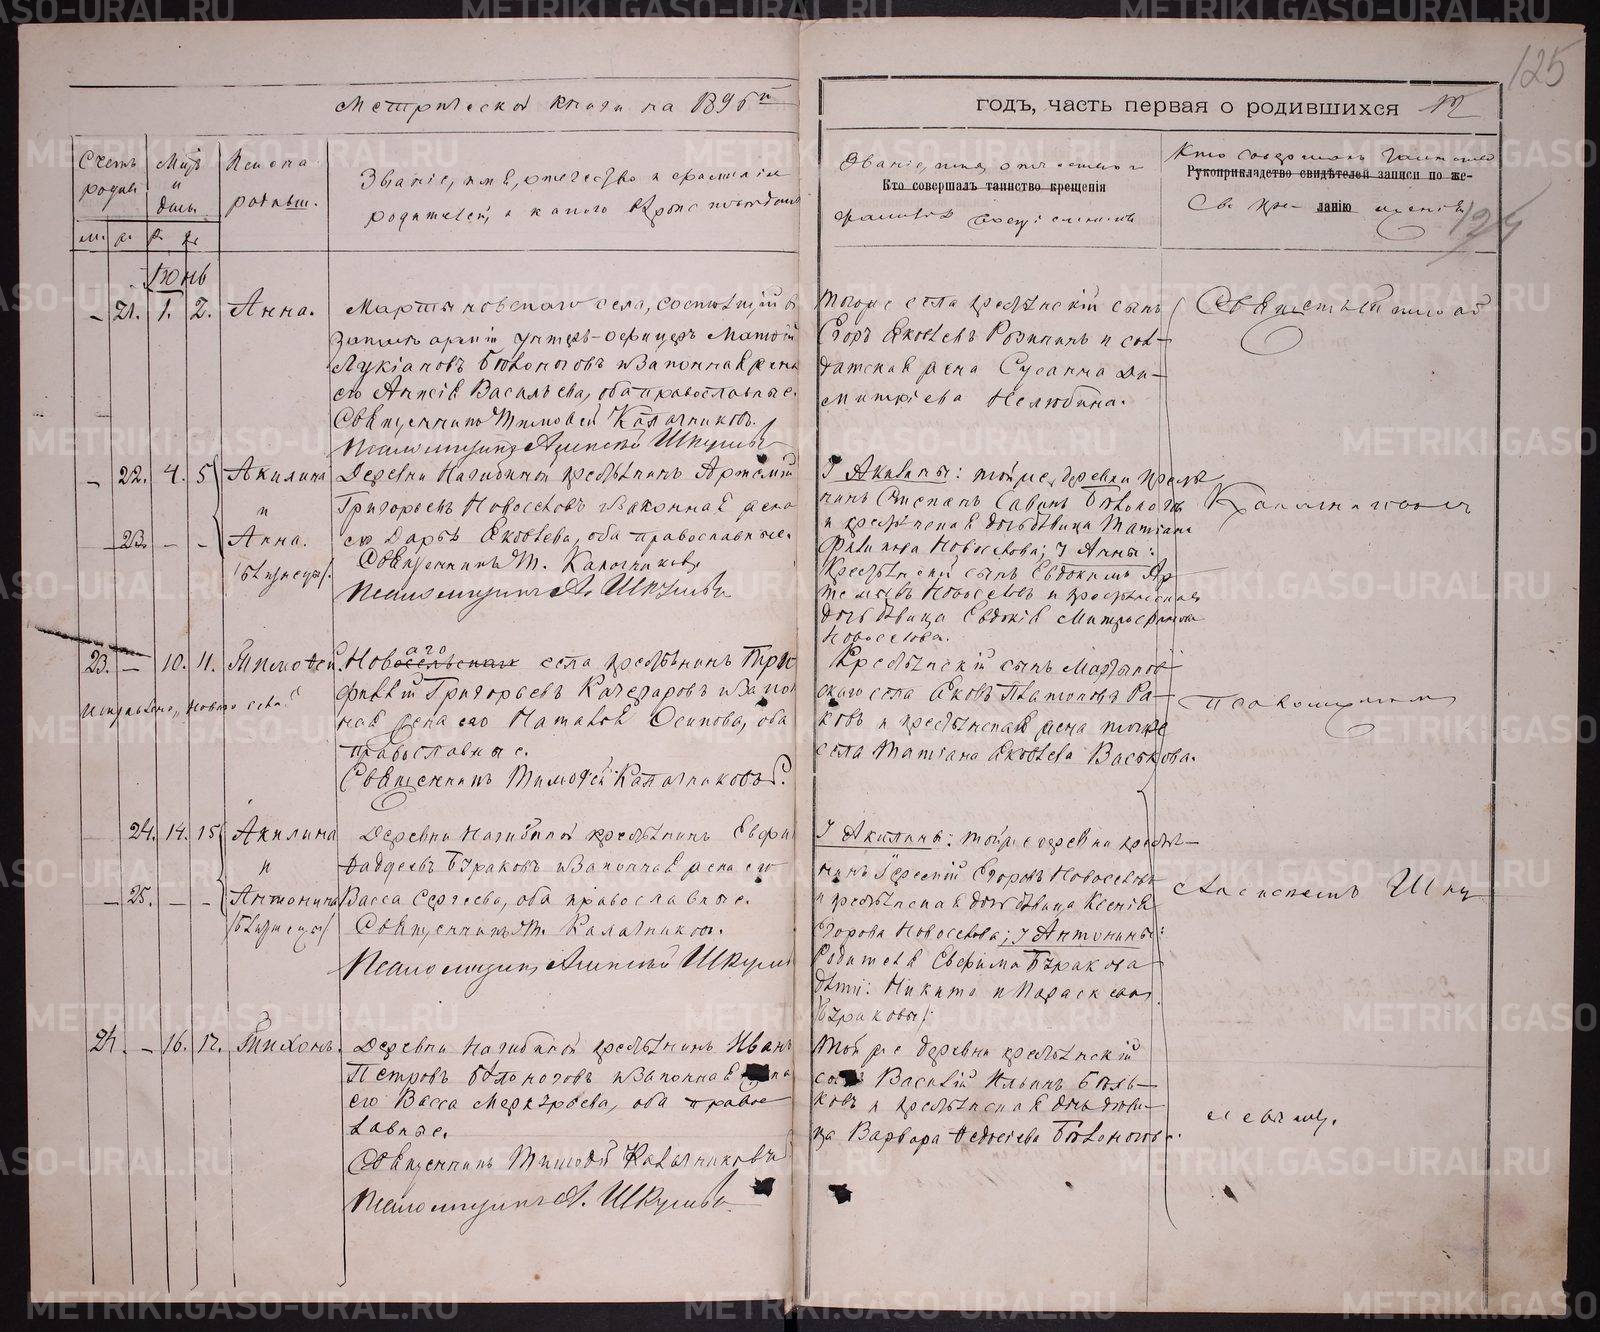 125
Метрической книги на 1896й
годъ, часть первая о родившихся
Счетъ родив.
Мцъ и день
Имена родивш.
Званіе, имя, отчество и фамилія
родителей, и какого вѣроисповѣданія
Званіе, имя, отчество и
Кто совершалъ таинство крещенія
фамилія воспріемниковъ
Кто совершалъ таинство
Рукоприкладство свидѣтелей записи по же-
ланію
м. ж. р. кр.
Іюнь
– 21. 1. 2. Анна.
Мартыновскаго села, состоящій въ
запасѣ арміи унтеръ-офицеръ
Лукіановъ Бѣлоноговъ и законная жена
его Анисія Васильева, оба православные.
Священникъ Тимофей Калачниковъ.
Псаломщикъ Алексѣй Шкулевъ
Тогоже села крестьянскій сынъ
Егоръ Яковлевъ и сол-
датская жена Сусанна Ди-
митріева Нелюбина.
Священникъ
– 22. 4. 5 Акилина
и
23. – – Анна.
/Близнецы/.
Деревни Нагибиной крестьянинъ Артемій
Григорьевъ Новоселовъ и законная жена
его Дарья Яковлева, оба православные.
Священникъ Т. Калачниковъ
Псаломщикъ А. Шкулевъ
У Акилины: тойже деревни кресть-
нинъ Степанъ Савинъ Бѣлоноговъ
и крестьянская дочь дѣвица Татіана
Филипова Новоселова; у Анны:
Крестьянскій сынъ Евдокимъ Ар-
темьевъ Новоселовъ и крестьянская
дочь дѣвица Евдокія Митрофанова
Новоселова.
Калачниковъ
23. – 10. 11. Тимофей.
Исправлено „Новаго села“
Новосельскаго села крестьянинъ Три-
филлій Григорьевъ Качегаровъ и закон-
ная жена его Наталія Осипова, оба
православные.
Священникъ Тимофей Калачниковъ.
Крестьянскій сынъ Мартынов-
скаго села Яковъ Платоновъ Ра-
ковъ и крестьянская жена тогоже
села Татіана Яковлева Васькова.
Псаломщикъ
24. 14. 15 Акилина
и
– 25. – – Антонина
/близнецы/
Деревни Нагибиной крестьянинъ Евфимъ
Фаддеевъ Бураковъ и законная жена его
Васса Сергеева, оба православные.
Священникъ Т. Калачниковъ.
Псаломщикъ Алексѣй Шкулевъ
У Акилины: тойже деревни кресть-
нинъ Егоровъ Новоселовъ
и крестьянская дочь дѣвица Ксенія
Егорова Новоселова; у Антонины:
Родителя Евфима Буракова
дѣти: Никита и Параскева
/Бураковы/.
Алексѣй Шку
24. – 16. 17. Тихонъ.
Деревни Нагибиной крестьянинъ Иванъ
Петровъ Бѣлоноговъ и законная жена
его Васса Меркурьева, оба право-
славные.
Священникъ Тимофей Калачниковъ
Псаломщикъ А. Шкулевъ
Той же деревни крестьянскій
сынъ Василій Ильинъ Бѣль-
ковъ и крестьянская дочь дѣви-
ца Варвара Ѳедосѣева Бѣлоногова.
левъ.